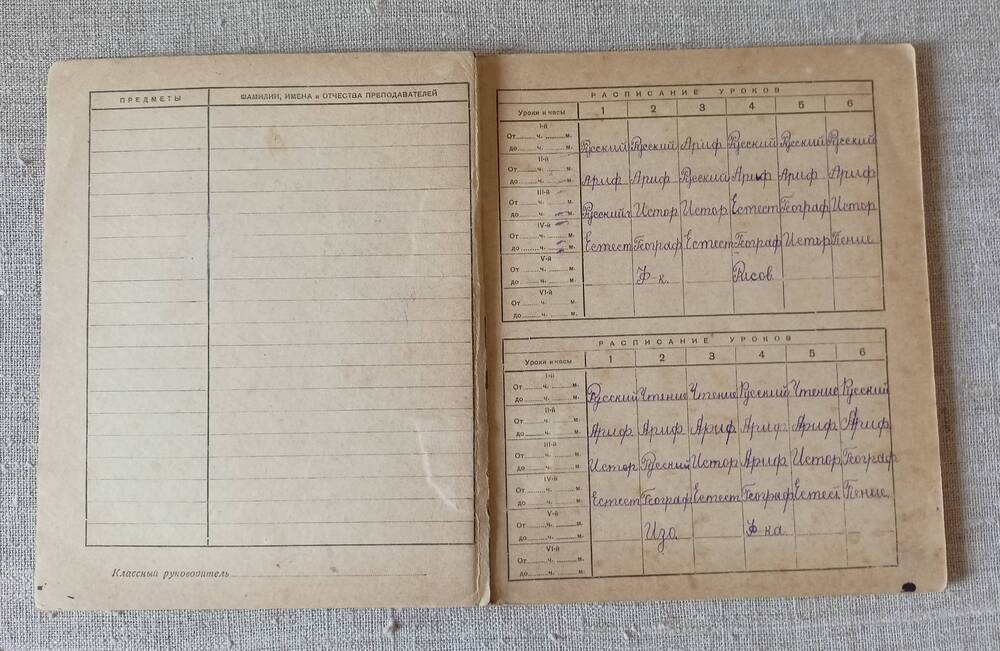 ПРЕДМЕТЫ ФАМИЛИИ, ИМЕНА и ОТЧЕСТВА ПРЕПОДАВАТЕЛЕЙ
Классный руководитель
РАСПИСАНИЕ УРОКОВ
Уроки и часы 1 2 3 4 5 6
I-й
От ч. м.
до ч. м. Русский Русский Ариф Русский Русский Русский
II-й
От ч. м.
до ч. м. Ариф Ариф Русский Ариф Ариф Ариф
III-й
От ч. м.
до ч. м. Русский Истор Истор Естест Географ Истор
IV-й
От ч. м.
до ч. м. Естест Географ Естест Географ Истор Пение
V-й
От ч. м.
до ч. м. Ф-к. Рисов
VI-й
От ч. м.
до ч. м.
РАСПИСАНИЕ УРОКОВ
Уроки и часы 1 2 3 4 5 6
I-й
От ч. м.
до ч. м. Русский Чтение Чтение Русский Чтение Русский
II-й
От ч. м.
до ч. м. Ариф Ариф Ариф Ариф Ариф Ариф
III-й
От ч. м.
до ч. м. Истор Русский Истор Ариф Истор Географ
IV-й
От ч. м.
до ч. м. Естест Географ Естест Географ Естест Пение
V-й
От ч. м.
до ч. м. Изо. Ф-ка.
VI-й
От ч. м.
до ч. м.